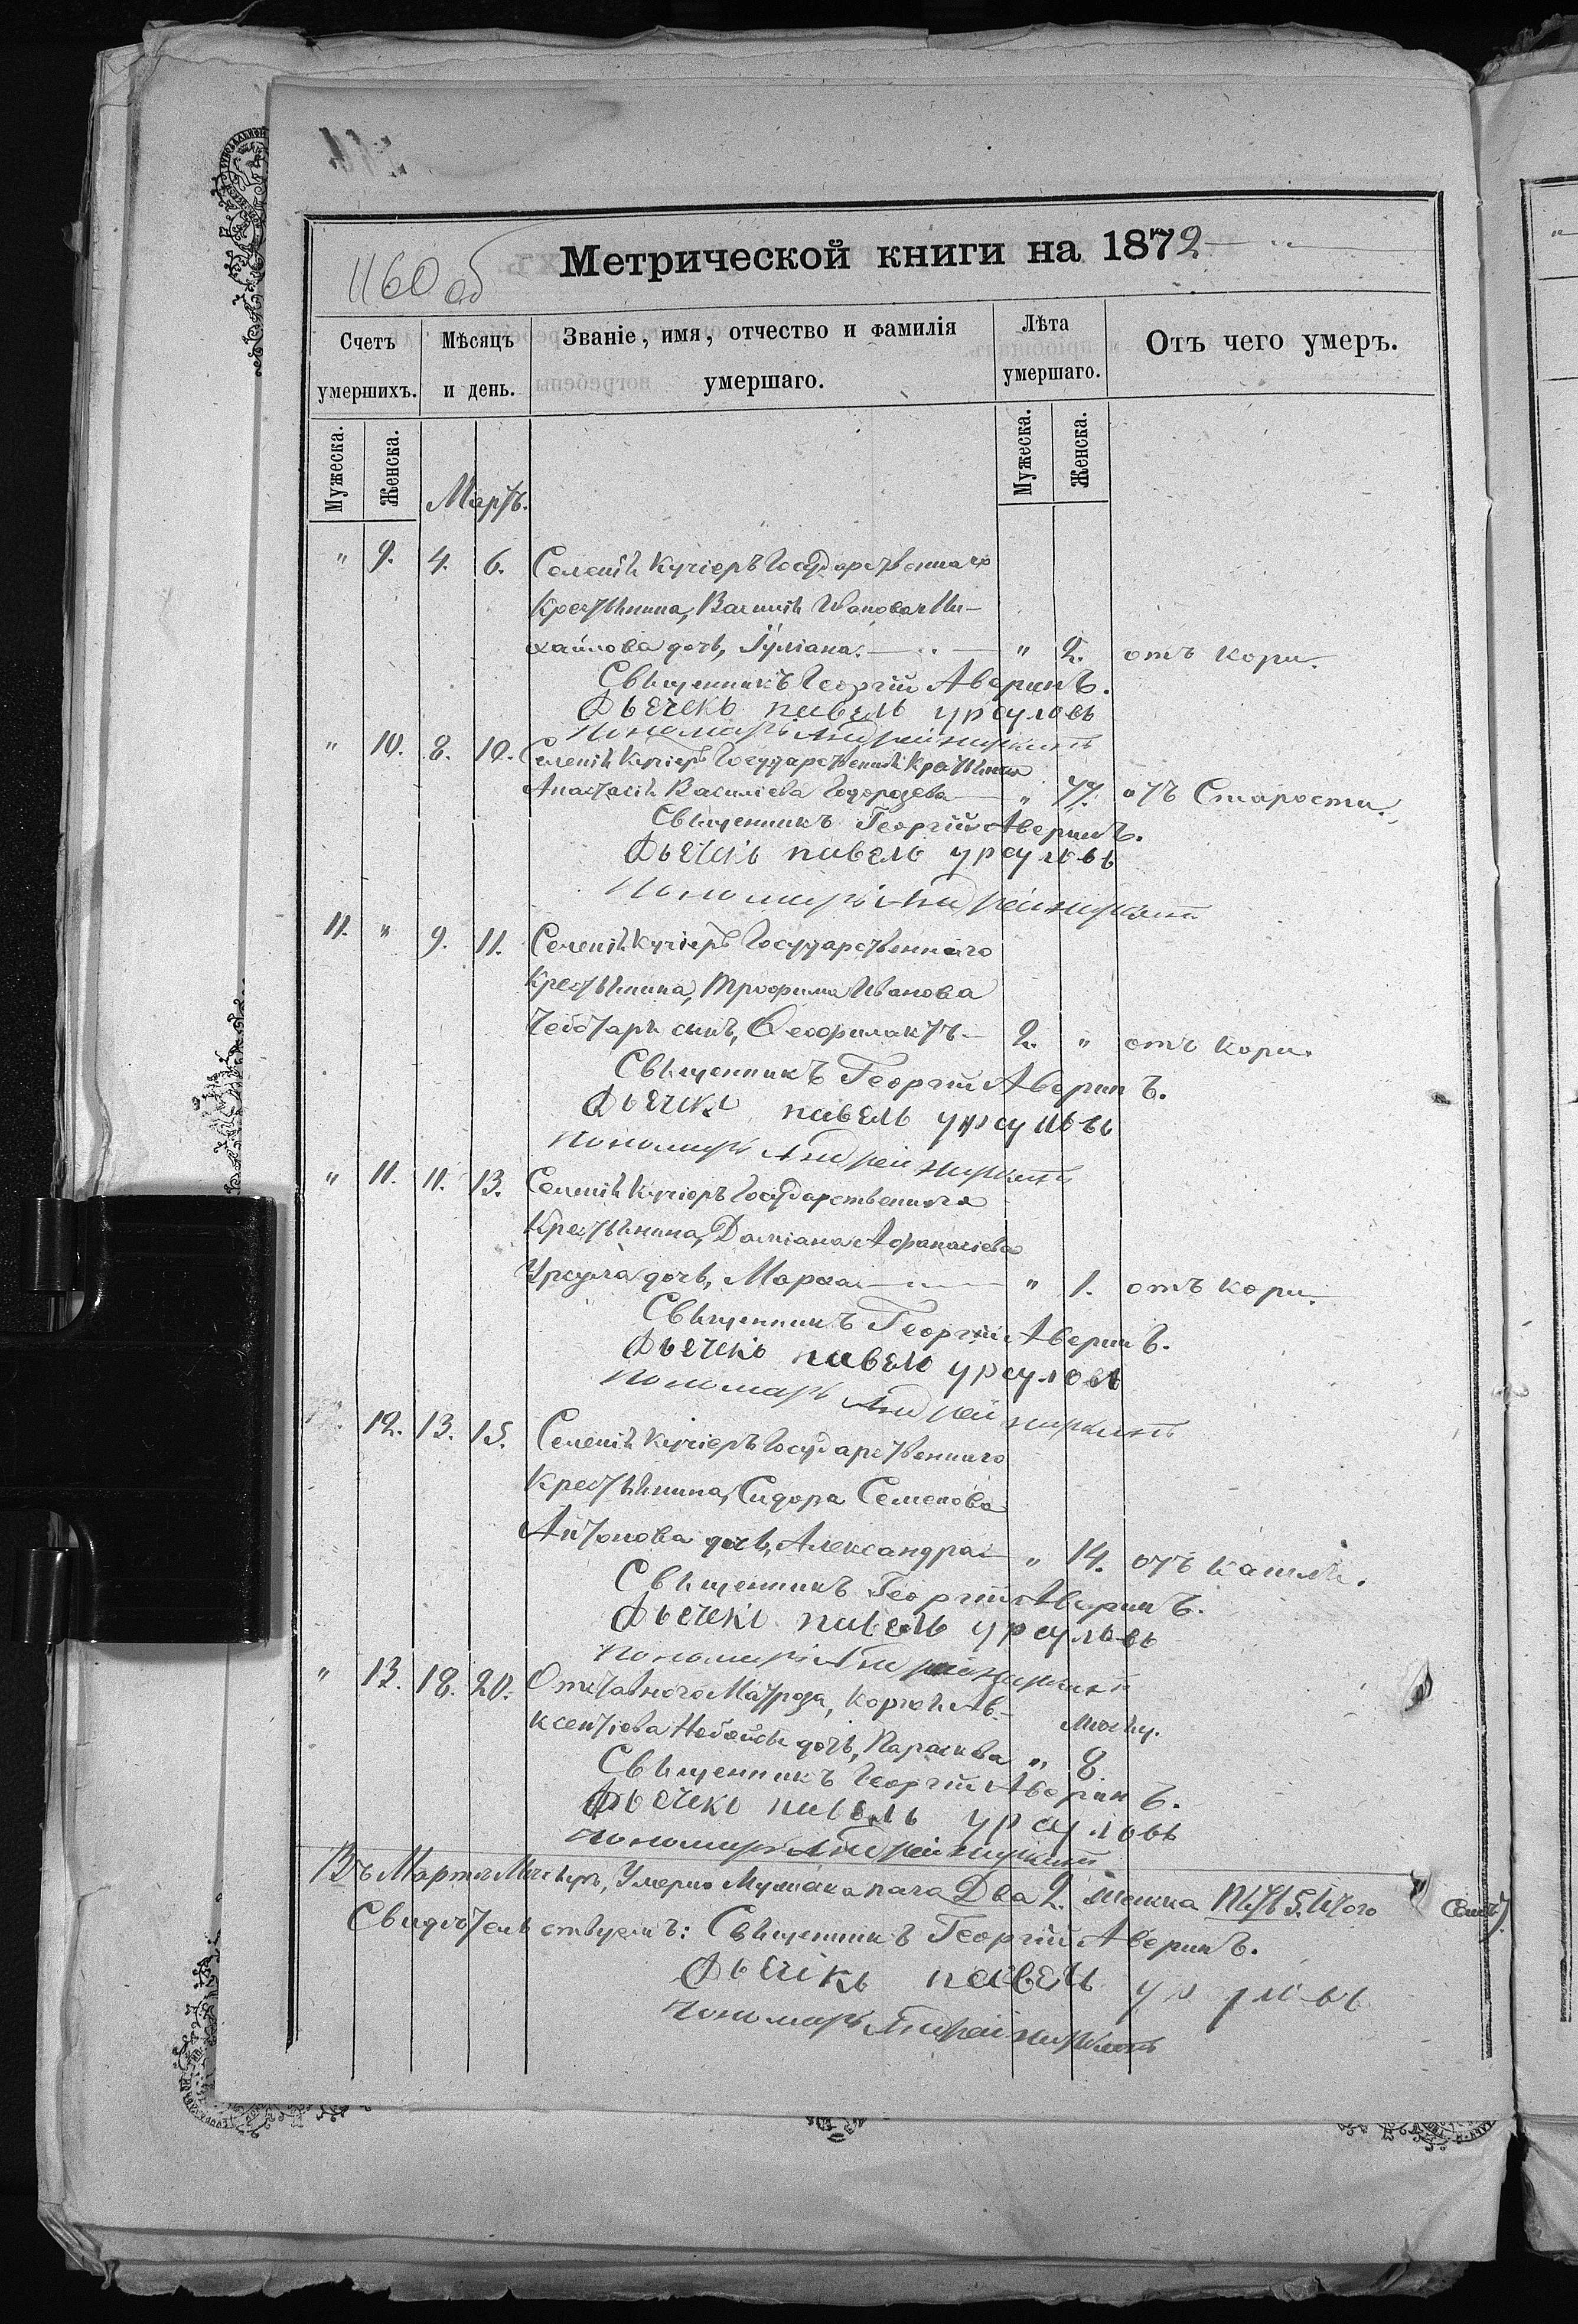 1160 об
Метрической книги на 1872
Счетъ умершихъ.
Мѣсяцъ и день.
Званіе, имя, отчество и фамилія умершаго.
Лѣта умершаго.
Отъ чего умеръ.
Мужеска.
Женска.
Мартъ.
Мужеска.
Женска.
" 9. 4. 6. Селенія Кучіеръ Государственнаго
Крестьянина, Василія Иванова Ми-
хайлова дочь, Іуліана. " 2. отъ кори.
Священникъ Георгій Аверинъ.
Дьячекъ павелъ урсуловъ
Пономарь Андрей
" 10. 8. 10. Селенія Кучіеръ Государственная Крестьянка
Анастасія Василіева Тодорозева " 77. отъ Старости.
Священникъ Георгій Аверинъ.
Дьячекъ павелъ урсуловъ
Пономарь Андрей
11. " 9. 11. Селенія Кучіеръ Государственнаго
Крестьянина, Трофима Иванова
Чеботарь сынъ, Феофилактъ 2. " отъ кори.
Священникъ Георгій Аверинъ.
Дьячекъ павелъ урсуловъ
Пономарь Андрей
" 11. 11. 13. Селенія Кучіеръ Государственнаго
Крестьянина, Даміана Афанасіева
Урсула дочь, Марѳа " 1. отъ кори.
Священникъ Георгій Аверинъ.
Дьячекъ павелъ урсуловъ
Пономарь Андрей
12. 13. 15. Селенія Кучіеръ Государственнаго
Крестьянина, Сидора Семенова
Антонова дочь, Александра " 14. отъ кашля.
Священникъ Георгій Аверинъ.
Дьячекъ павелъ урсуловъ
Пономарь Андрей
" 13. 18. 20. Отставного Матроза, Ав-
ксентіева дочь, Параскева " 8
Священникъ Георгій Аверинъ.
Дьячекъ павелъ урсуловъ
Пономарь Андрей
Въ Мартѣ Месяцѣ, Умерло Мужеска пола Два 2. женска Пять 5. Итого Семь 7.
Свидѣтельствуемъ: Священникъ Георгій Аверинъ.
Дьячекъ павелъ урсуловъ
Пономарь Андрей